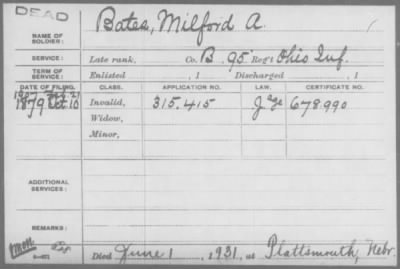 DEAD
NAME OF SOLDIER: Bates, Milford A.
SERVICE: Late rank, Co. B. 95 Reg't Ohio Inf.
TERM OF SERVICE: Enlisted , 1 Discharged , 1
DATE OF FILING. CLASS. APPLICATION NO. LAW. CERTIFICATE NO.
1879 Oct 10 Invalid, 315.415 678.990
Widow,
Minor,
ADDITIONAL SERVICES:
REMARKS:
Died June 1, 1931, at Plattsmouth, Nebr.